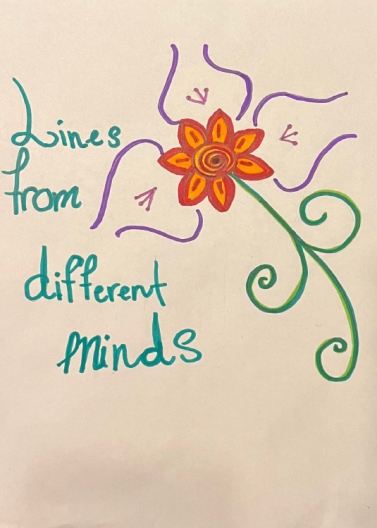 Lines
from
different
minds